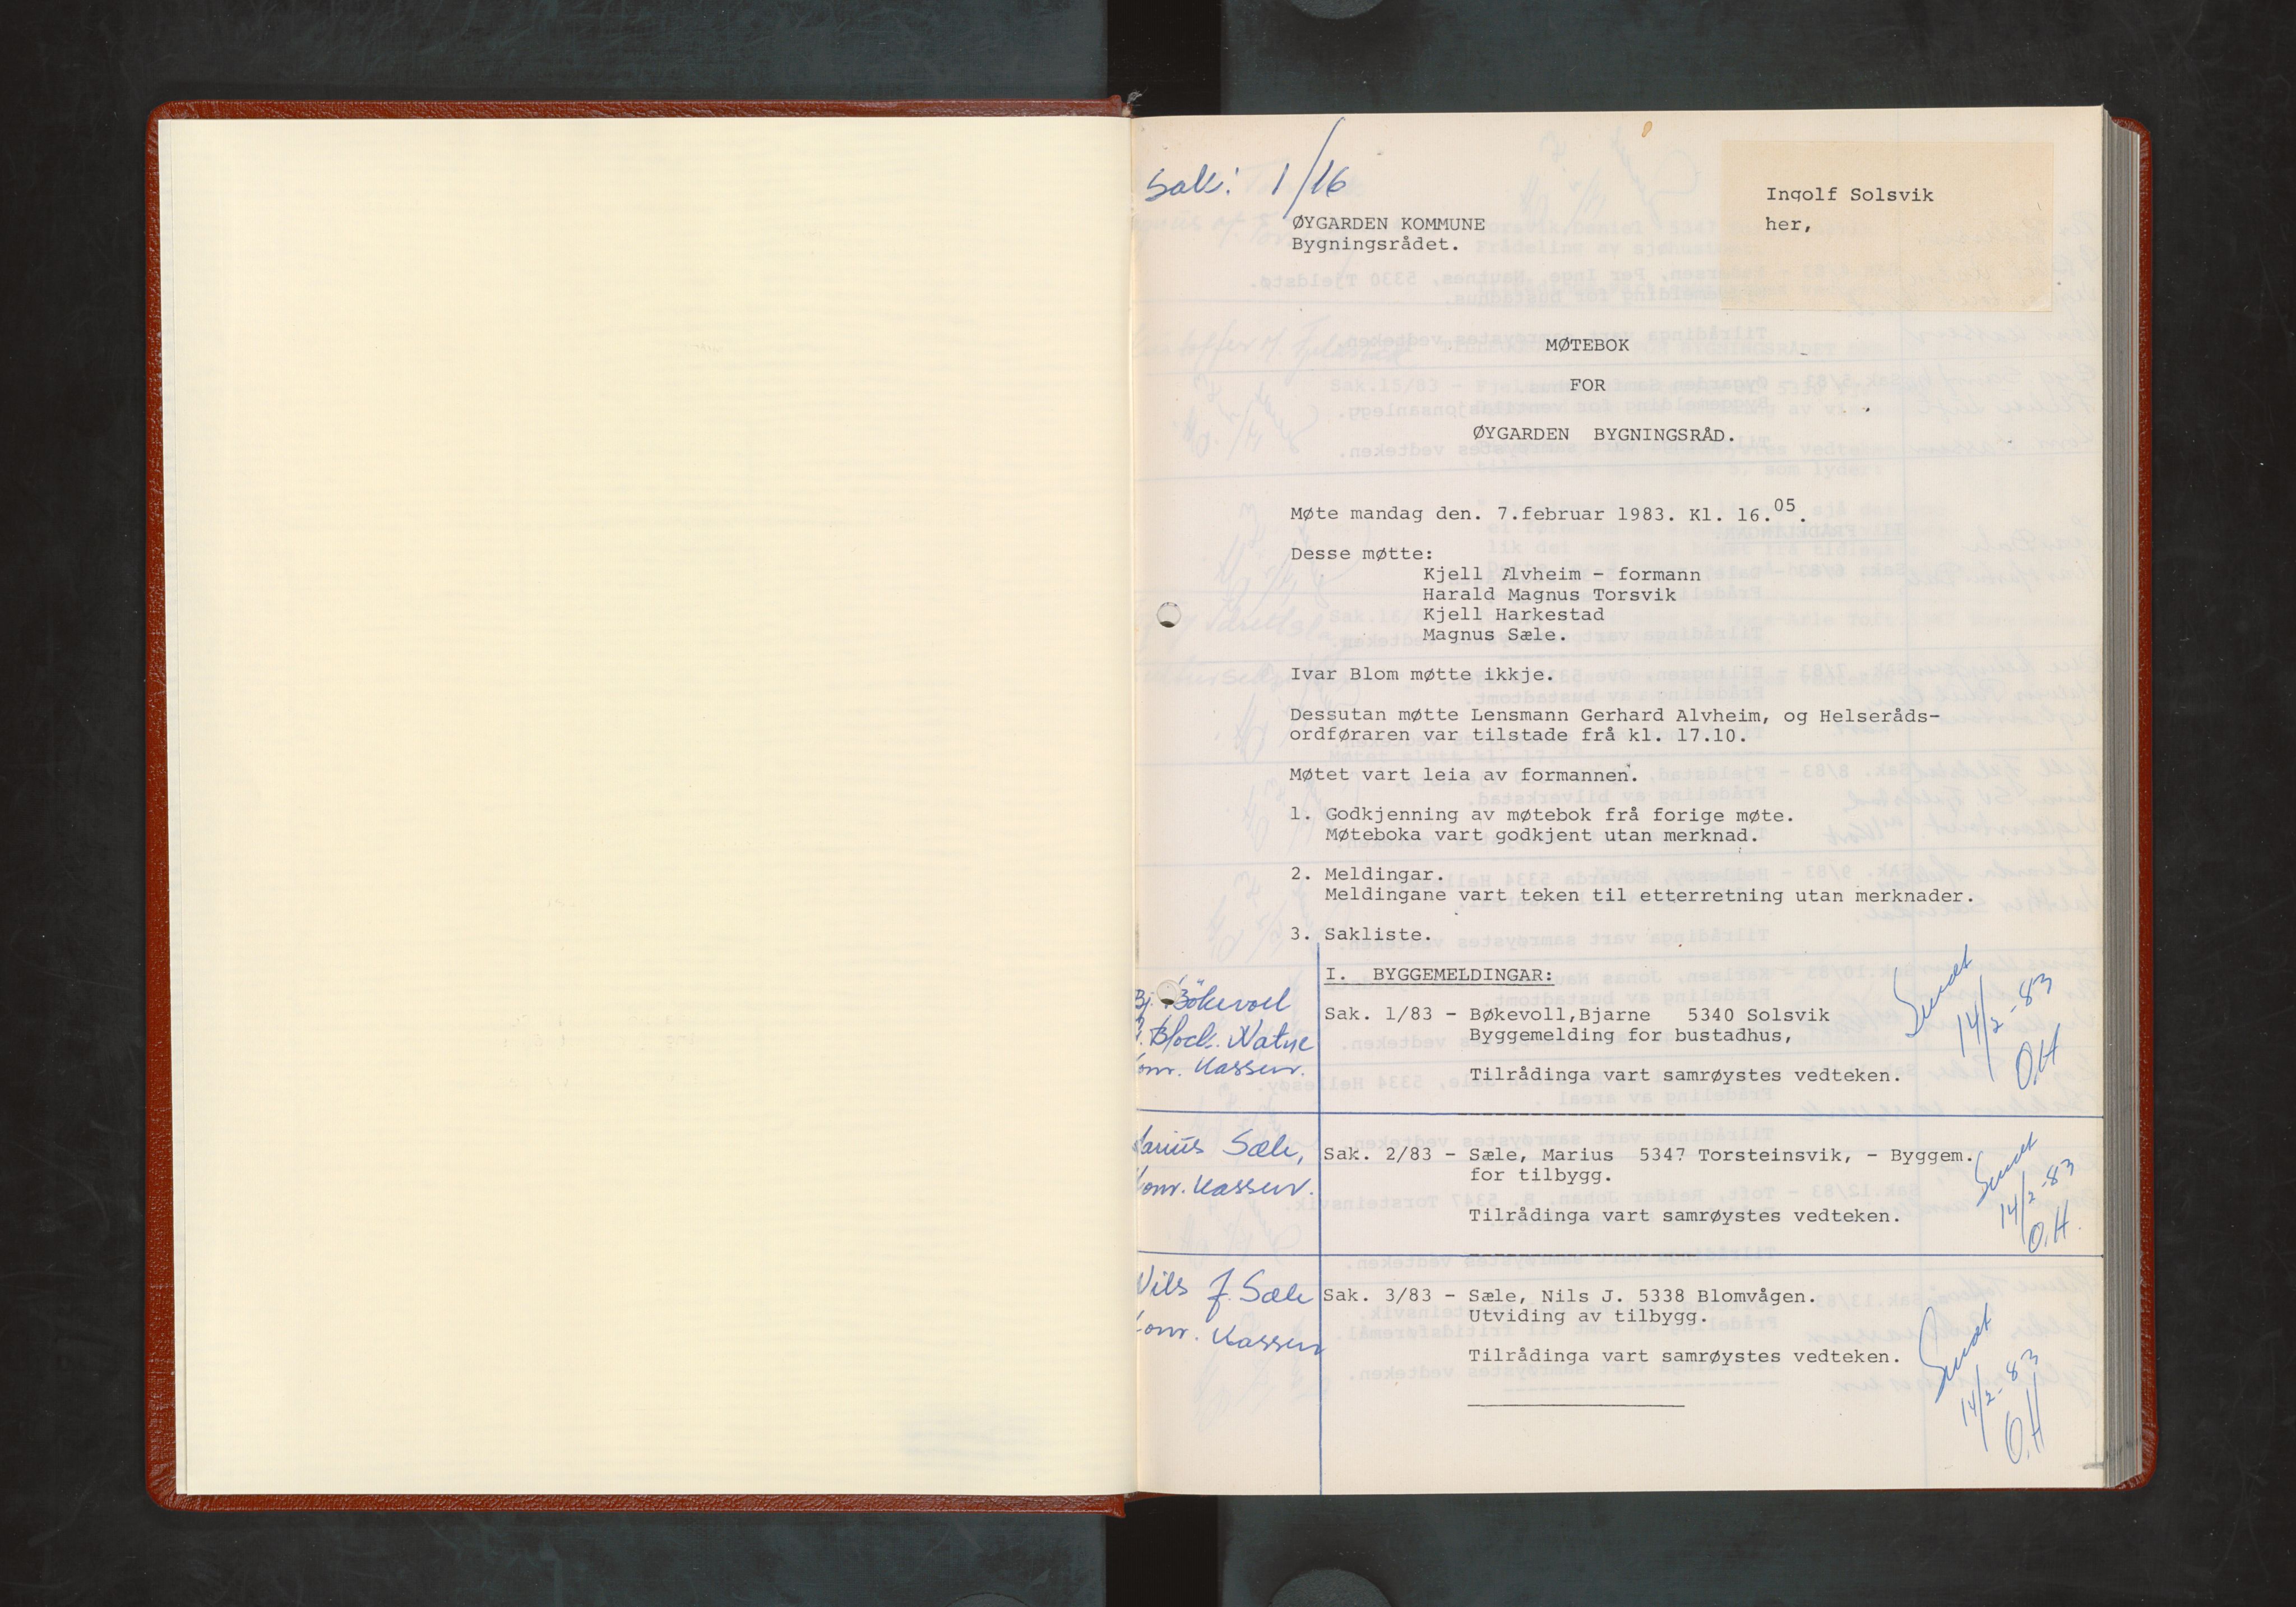 Sak: 1/16
Ingolf Solsvik
her,
ØYGARDEN KOMMUNE
Bygningsrådet.
MØTEBOK
FOR
ØYGARDEN BYGNINGSRÅD.
Møte mandag den. 7.februar 1983. Kl. 16.05.
Desse møtte:
Kjell Alvheim - formann
Harald Magnus Torsvik
Kjell Harkestad
Magnus Sæle.
Ivar Blom møtte ikkje.
Dessutan møtte Lensmann Gerhard Alvheim, og Helseråds-
ordføraren var tilstade frå kl. 17.10.
Møtet vart leia av formannen.
1. Godkjenning av møtebok frå forige møte.
Møteboka vart godkjent utan merknad.
2. Meldingar.
Meldingane vart teken til etterretning utan merknader.
3. Sakliste.
I. BYGGEMELDINGAR:
Bj. Bökevoll
Block. Watne
kom. Kasserer.
Sak. 1/83 - Bøkevoll,Bjarne 5340 Solsvik
Byggemelding for bustadhus,
Tilrådinga vart samrøystes vedteken.
Sendt
14/2-83
O.H
Marius Sæle,
kom. Kasserer.
Sak. 2/83 - Sæle, Marius 5347 Torsteinsvik, - Byggem.
for tilbygg.
Tilrådinga vart samrøystes vedteken.
Sendt
14/2-83
O.H.
Nils J. Sæle
kom. Kasserer
Sak. 3/83 - Sæle, Nils J. 5338 Blomvågen.
Utviding av tilbygg.
Tilrådinga vart samrøystes vedteken.
Sendt
14/2-83
O.H